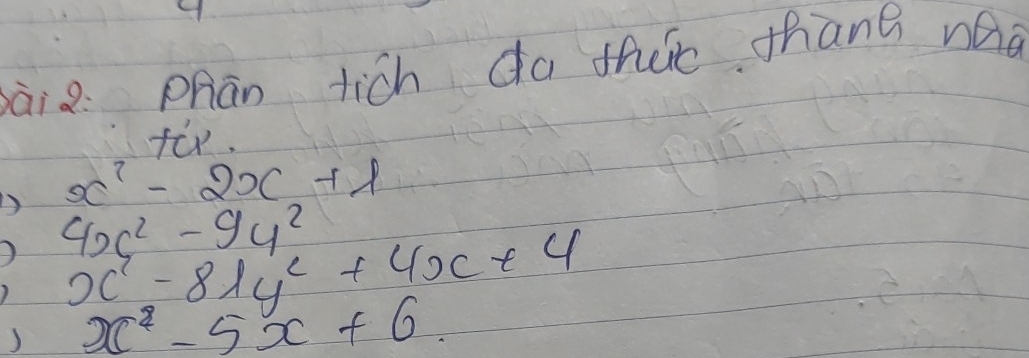 bài 2: Phân tích đa thức thành nhâ
tử.
1) x² - 2x + 1
) 4x² - 9y²
) x² - 81y² + 4x + 4
) x² - 5x + 6.